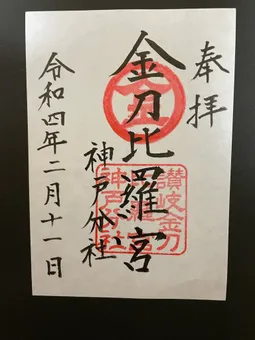 奉拝
金刀比羅宮
神戸分社
令和四年二月十一日
讃岐金刀
神戸分社